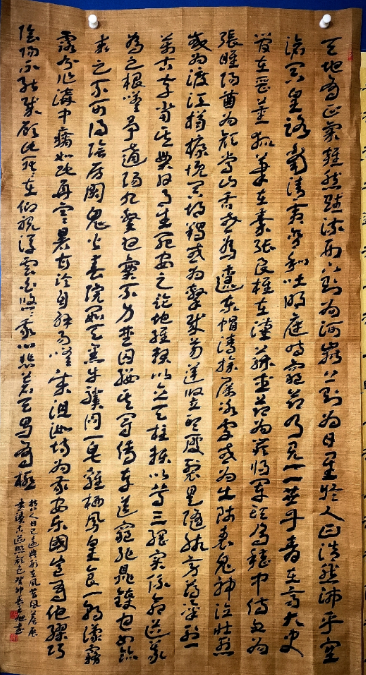 天地有正氣雜然賦流形下則為河嶽上則為日星於人曰浩然沛乎塞
蒼冥皇路當清夷含和吐明庭時窮節乃見一一垂丹青在齊太史
簡在晉董狐筆在秦張良椎在漢蘇武節為嚴將軍頭為嵇侍中血為
張睢陽齒為顏常山舌或為遼東帽清操厲冰雪或為出師表鬼神泣壯烈
或為渡江楫慷慨吞胡羯或為擊賊笏逆豎頭破裂是氣所磅礴凜烈
萬古存當其貫日月生死安足論地維賴以立天柱賴以尊三綱實係命道義
為之根嗟予遘陽九隸也實不力楚囚纓其冠傳車送窮北鼎鑊甘如飴
求之不可得陰房闐鬼火春院閟天黑牛驥同一皂雞棲鳳凰食一朝濛霧
露分作溝中瘠如此再寒暑百沴自辟易嗟哉沮洳場為我安樂國豈有他繆巧
陰陽不能賊顧此耿耿在仰視浮雲白悠悠我心悲蒼天曷有極
哲人日已遠典刑在夙昔風簷展
書讀古道照顏色癸卯